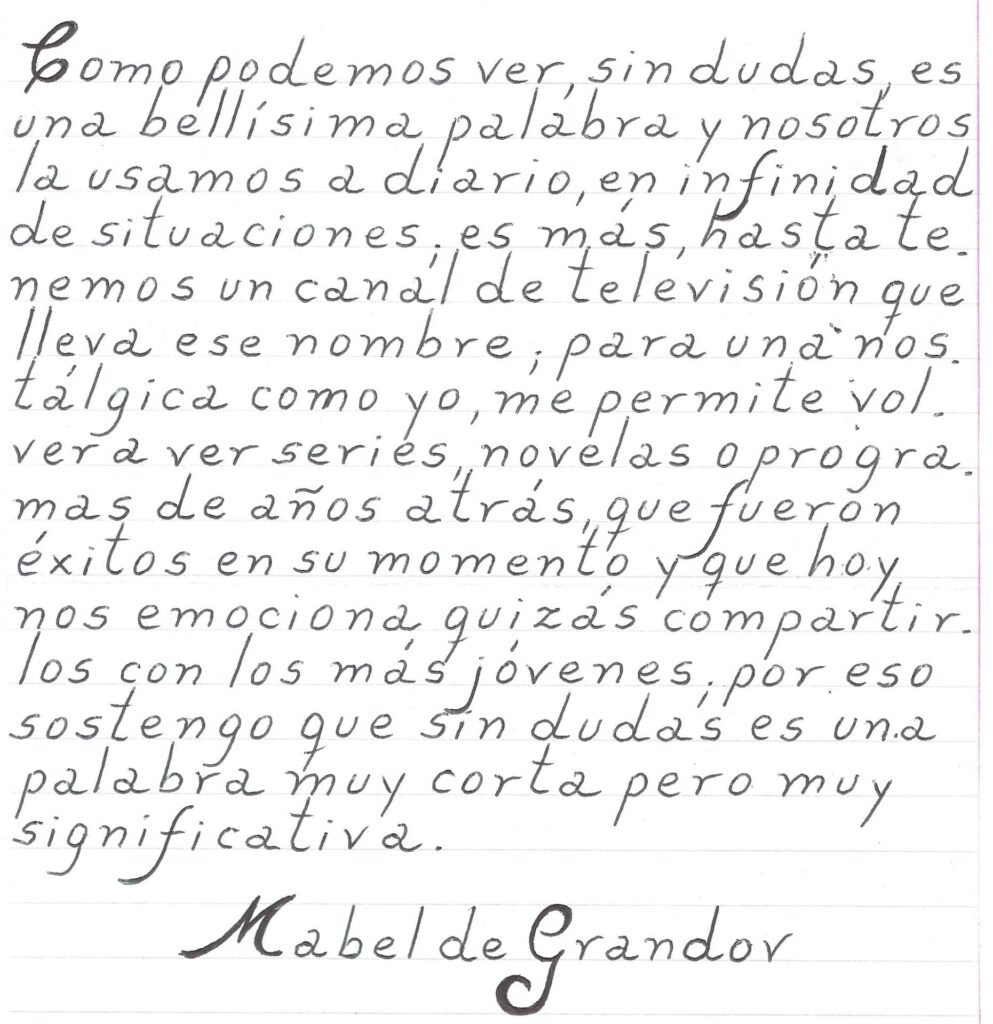 Como podemos ver, sin dudas, es
una bellísima palabra y nosotros
la usamos a diario, en infinidad
de situaciones; es más, hasta te-
nemos un canal de televisión que
lleva ese nombre; para una nos-
tálgica como yo, me permite vol-
ver a ver series, novelas o progra-
mas de años atrás, que fueron
éxitos en su momento y que hoy,
nos emociona quizás compartir-
los con los más jóvenes; por eso
sostengo que sin dudas es una
palabra muy corta pero muy
significativa.
Mabel de Grandov